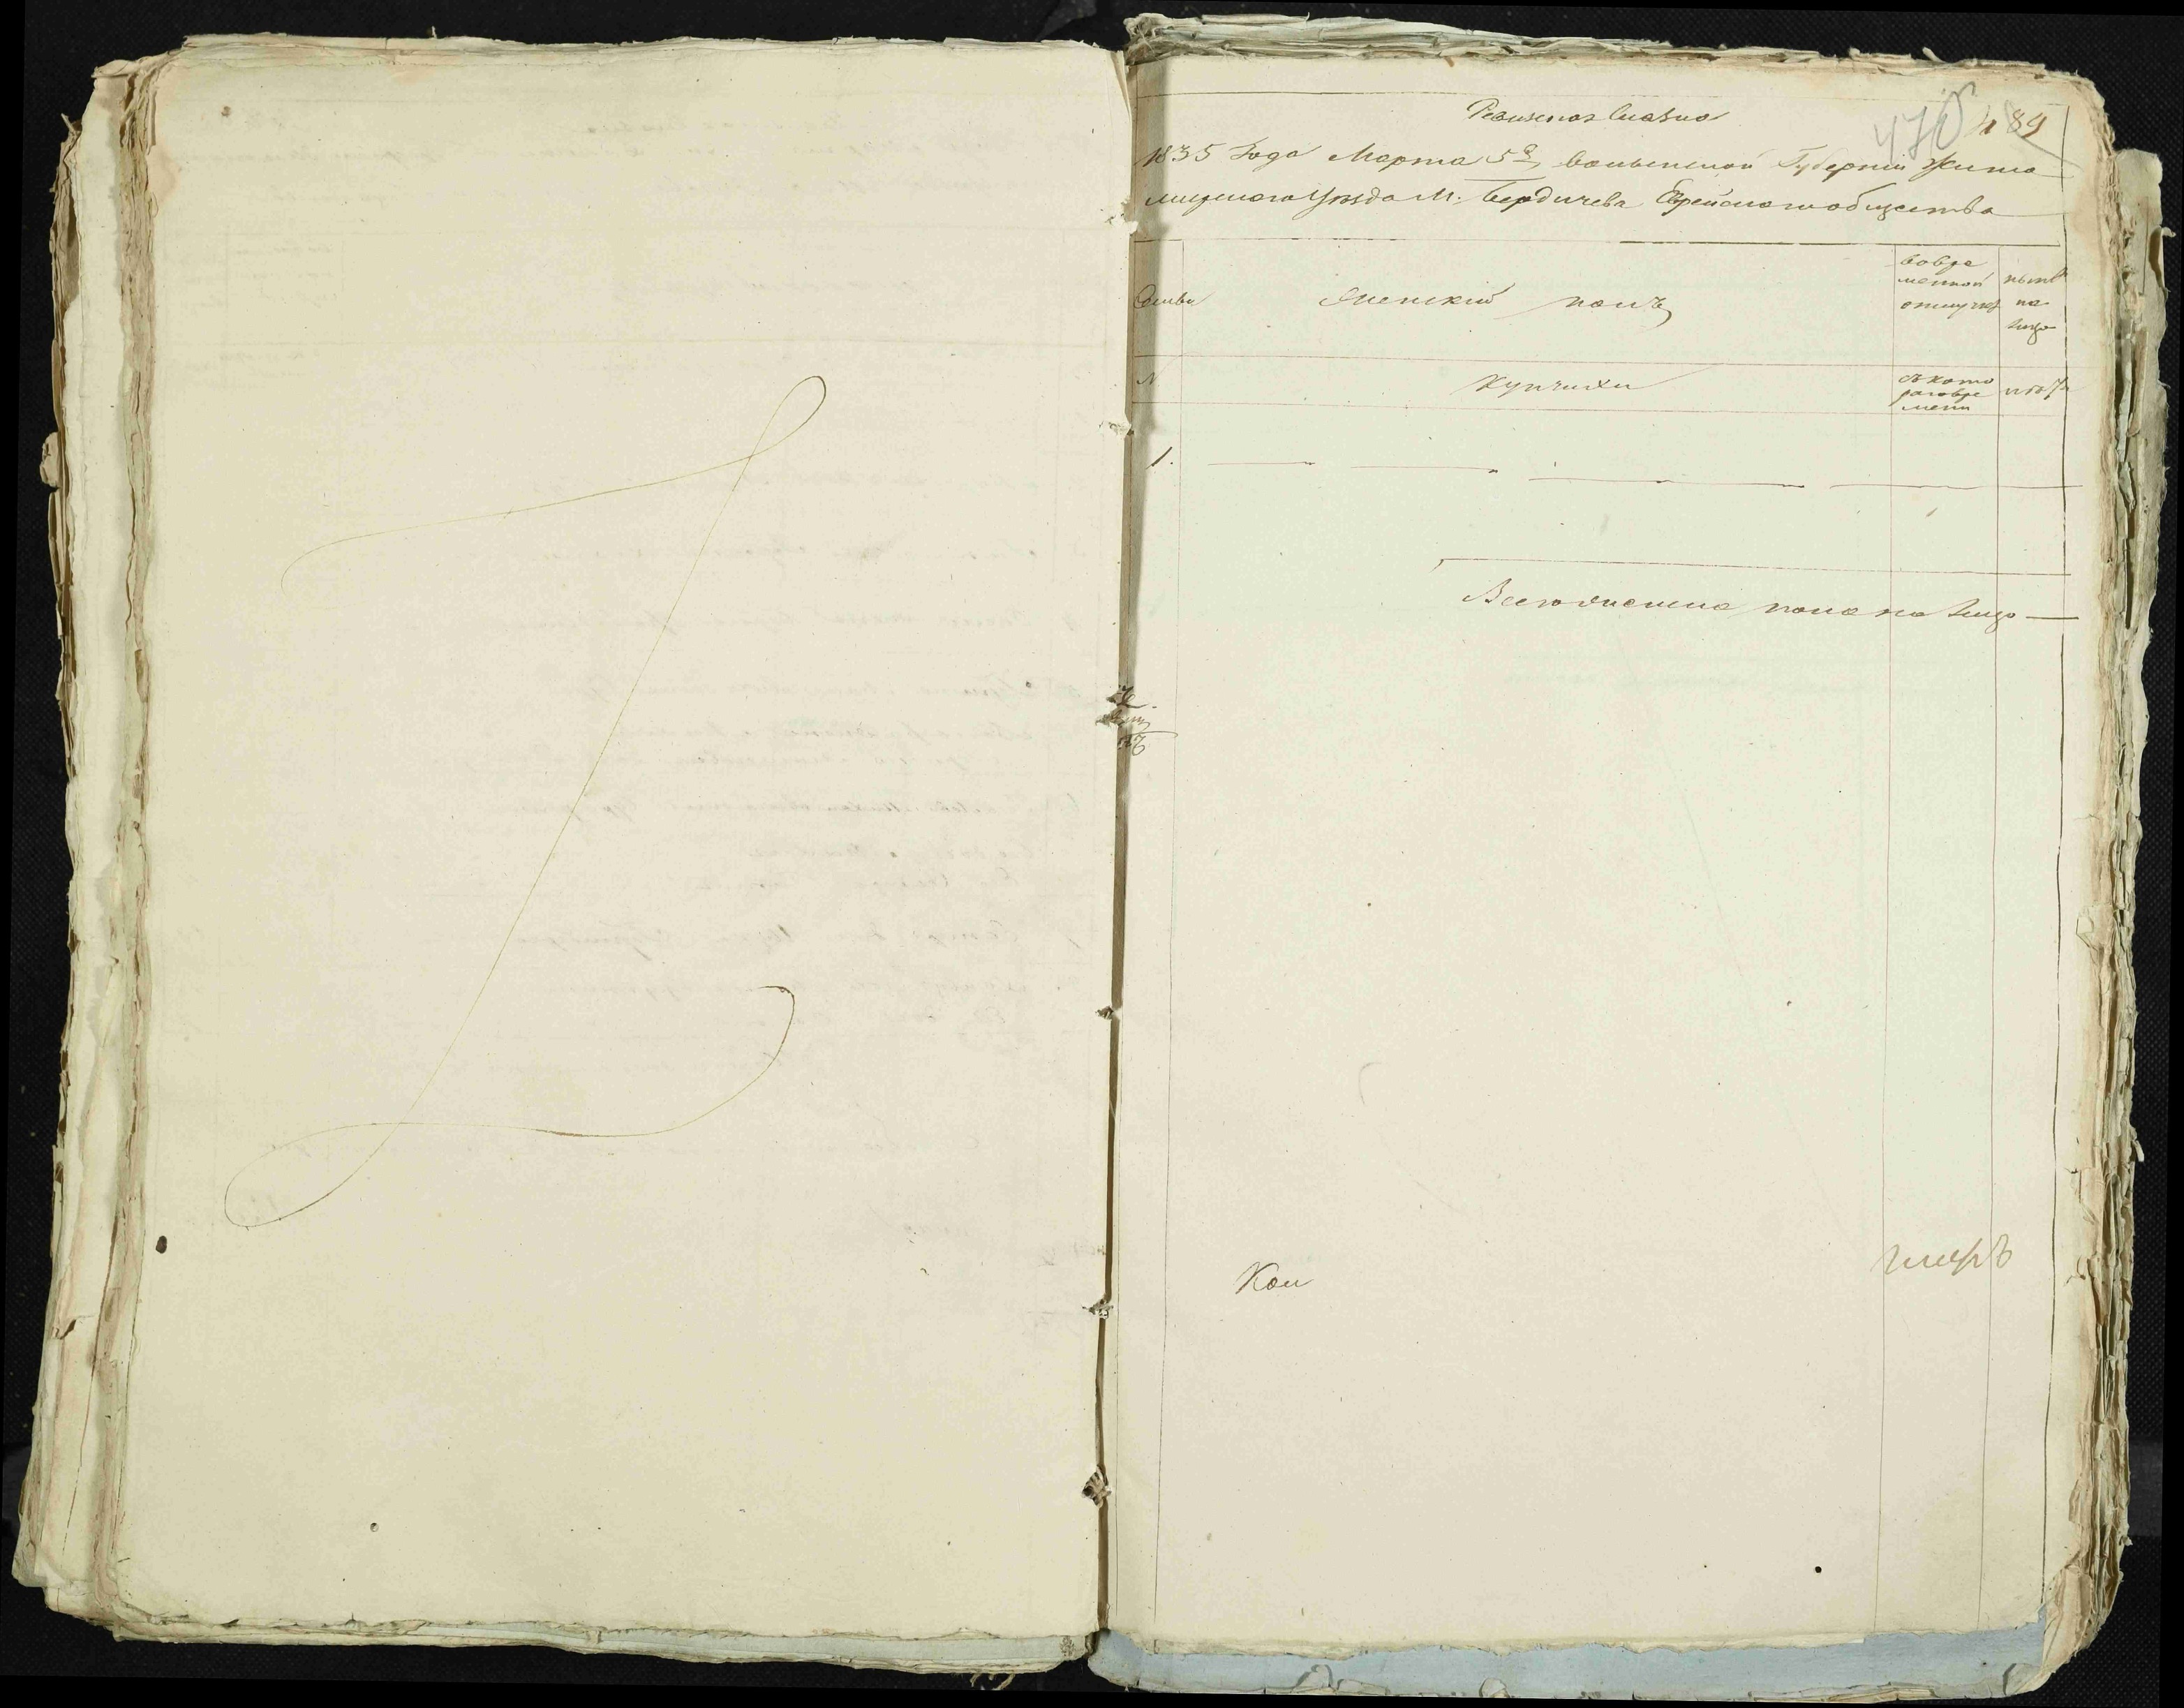 Ревизская Сказка
489
1835 Года Марта 5го волынской Губернии Жито
мирского Уезда М. Бердичева Еврейского общества
Семьи
Женский полъ
вовре
менной
отлучке
ныне
на
лицо
N
Купчихи
съ кото
раговре
мени
лета
1.
Всего женска пола на лицо —
Кон